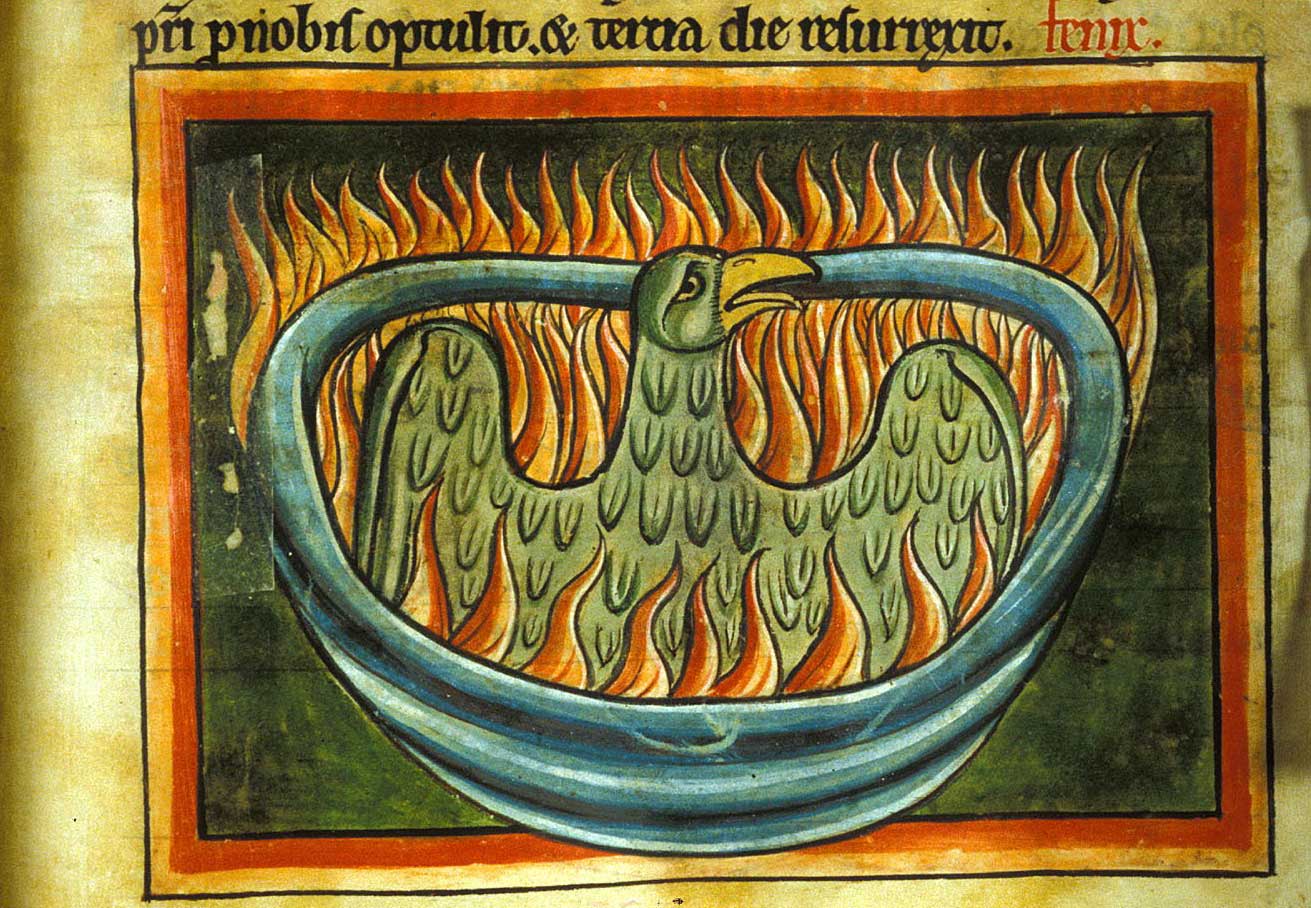 pr̄i p nobis optulit. & tercia die resurrexit. fenix.